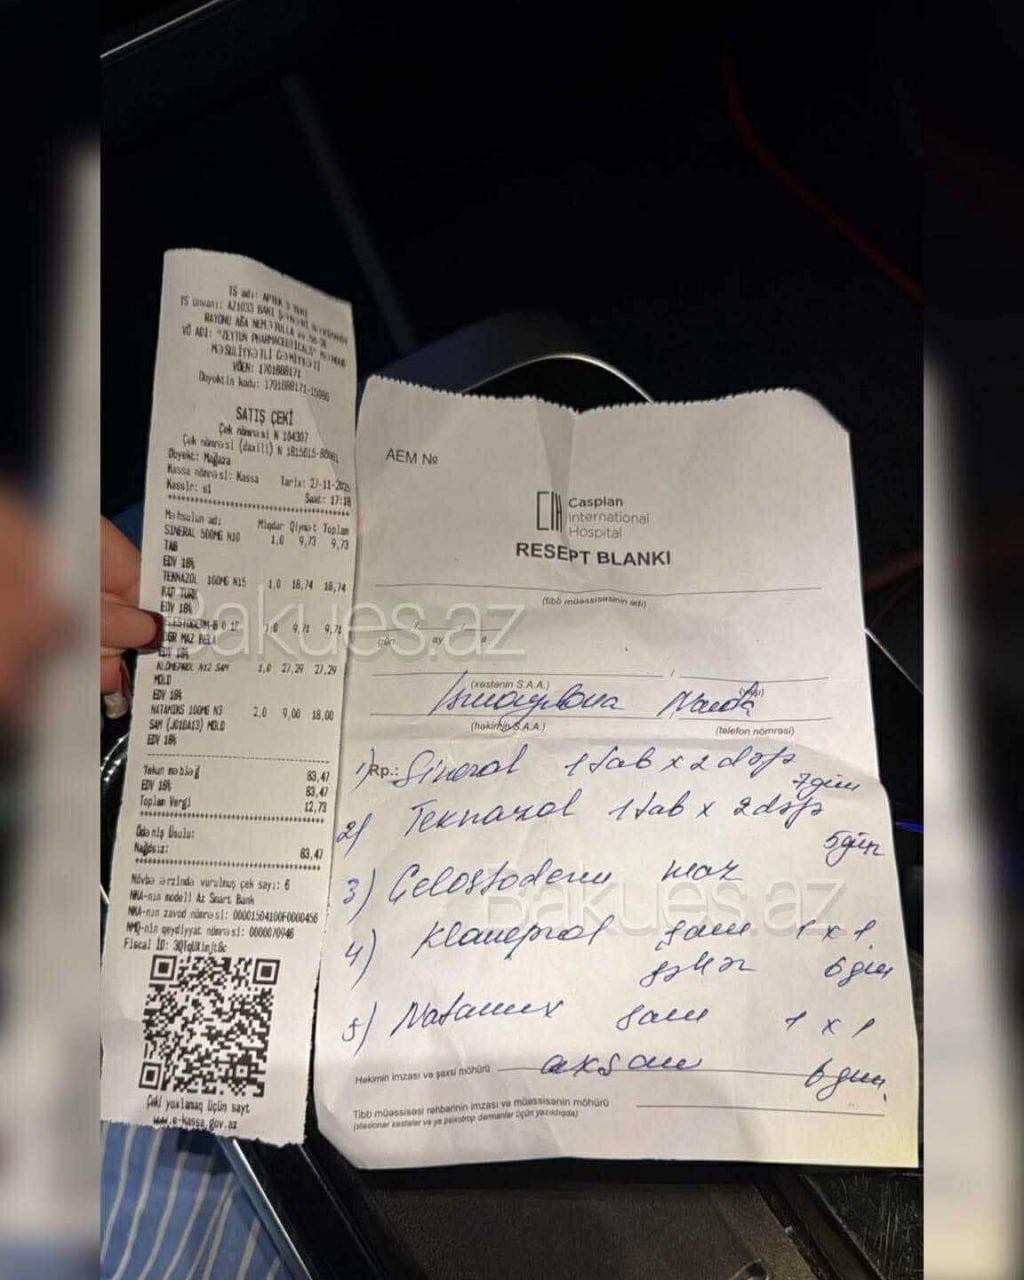 TS adı: APTEK
TS ünvanı: AZ1033 BAKI
RAYONU AĞA NEMƏTULLA
VÖ ADI: "ZEYTUN PHARMACEUTICALS"
MƏSULİYYƏTLİ CƏMİYYƏTİ
VÖEN: 1701688171
Obyektin kodu: 1701688171-15086
SATIŞ ÇEKİ
Çek nömrəsi N 104307
Çek nömrəsi (daxili) N
Obyekt: Mağaza
Kassa nömrəsi: Kassa Tarix: 27-11-
Kassir: s1 Saat: 17:18
Məhsulun adı Miqdar Qiymət Toplam
SINERAL 500MG N10 1,0 9,73 9,73
TAB
EDV 18%
TEKNAZOL 100MG N15 1,0 18,74 18,74
KAP TURK
EDV 18%
9,71 9,71
MAZ BELA
EDV 18%
KLOMEPROL N12 SAM 1,0 27,29 27,29
MOLD
EDV 18%
NATAMIKS 100MG N3 2,0 9,00 18,00
SAM (J01DA13) MOLD
EDV 18%
Yekun məbləğ 83,47
EDV 18% 83,47
Toplam Vergi 12,73
Ödəniş Üsulu:
Nağdsız: 83,47
Növbə ərzində vurulmuş çek sayı: 6
NKA-nın modeli Az Smart Bank
NKA-nın zavod nömrəsi: 00001504100F0000456
NMQ-nin qeydiyyat nömrəsi: 0000070946
Fiscal ID:
Çeki yoxlamaq üçün sayt
www.e-kassa.gov.az
AEM №
CIH Caspian
International
Hospital
RESEPT BLANKI
(tibb müəssisəsinin adı)
gün ay
(xəstənin S.A.A.) (yaşı)
(həkimin S.A.A.) (telefon nömrəsi)
1) Rp.: Sineral 1 tab x 2 dəfə
7 gün
2) Teknazol 1 tab x 2 dəfə
5 gün
3) Celestoderm maz
4) Klomeprol şam 1 x 1
səhər 6 gün
5) Natamix şam 1 x 1
axşam 6 gün
Həkimin imzası və şəxsi möhürü
Tibb müəssisəsi rəhbərinin imzası və müəssisənin möhürü
(stasionar xəstələr və ya psixotrop dərmanlar üçün yazıldıqda)
Bakues.az
Bakues.az